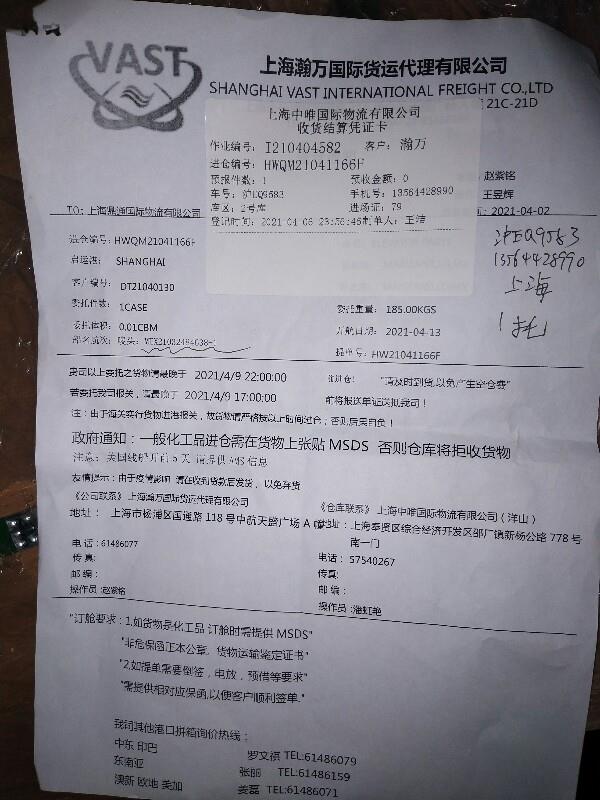 VAST
上海瀚万国际货运代理有限公司
SHANGHAI VAST INTERNATIONAL FREIGHT CO.,LTD
21C-21D
上海中唯国际物流有限公司
收货结算凭证卡
作业编号: I210404582 客户: 瀚万
进仓编号: HWQM21041166F
预报件数: 1 预收金额: 0
车号: 沪EQ9583 手机号: 13564428990
库区: 2号库 进场证: 79
登记时间: 2021-04-08 23:56:46 制单人: 王洁
赵紫铭
王昱辉
TO: 上海鼎通国际物流有限公司
2021-04-02
进仓编号: HWQM21041166F
启运港: SHANGHAI
客户编号: DT21040130
委托件数: 1CASE
委托重量: 185.00KGS
委托体积: 0.01CBM
开航日期: 2021-04-13
船名航次: 唛头:
提单号: HW21041166F
沪EQ9583
13564428990
上海
1托
贵司以上委托之货物请最晚于 2021/4/9 22:00:00 "请及时到货,以免产生空仓费"
若委托我司报关,请最晚于 2021/4/9 17:00:00 前将报送单证送抵我司!
注:由于海关实行货物进港报关,故货物请严格按以上时间进仓;否则后果自负!
政府通知:一般化工品进仓需在货物上张贴 MSDS 否则仓库将拒收货物
注意:美国线船开前 5 天 请提供 AMS 信息
友情提示:由于疫情影响 请在收到货款后发货,以免弃货
《公司联系》上海瀚万国际货运代理有限公司
《仓库联系》上海中唯国际物流有限公司(洋山)
地址: 上海市杨浦区国通路 118 号中航天盛广场 A
地址: 上海奉贤区综合经济开发区邵厂镇新杨公路 778 号
南一门
电话: 61486077
电话: 57540267
传真:
传真:
邮编:
邮编:
操作员:赵紫铭
操作员:潘虹艳
"订舱要求:1.如货物是化工品 订舱时需提供 MSDS"
"非危保函正本公章, 货物运输鉴定证书"
"2.如提单需要倒签,电放,预借等要求"
"需提供相对应保函,以便客户顺利签单."
我司其他港口拼箱询价热线:
中东 印巴 罗文祺 TEL:61486079
东南亚 张丽 TEL:61486159
澳新 欧地 美加 姜磊 TEL:61486071